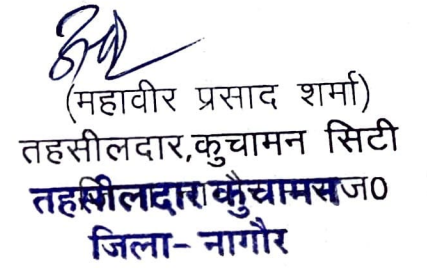 (महावीर प्रसाद शर्मा)
तहसीलदार,कुचामन सिटी
तहसीलदार कुचामन
जिला- नागौर